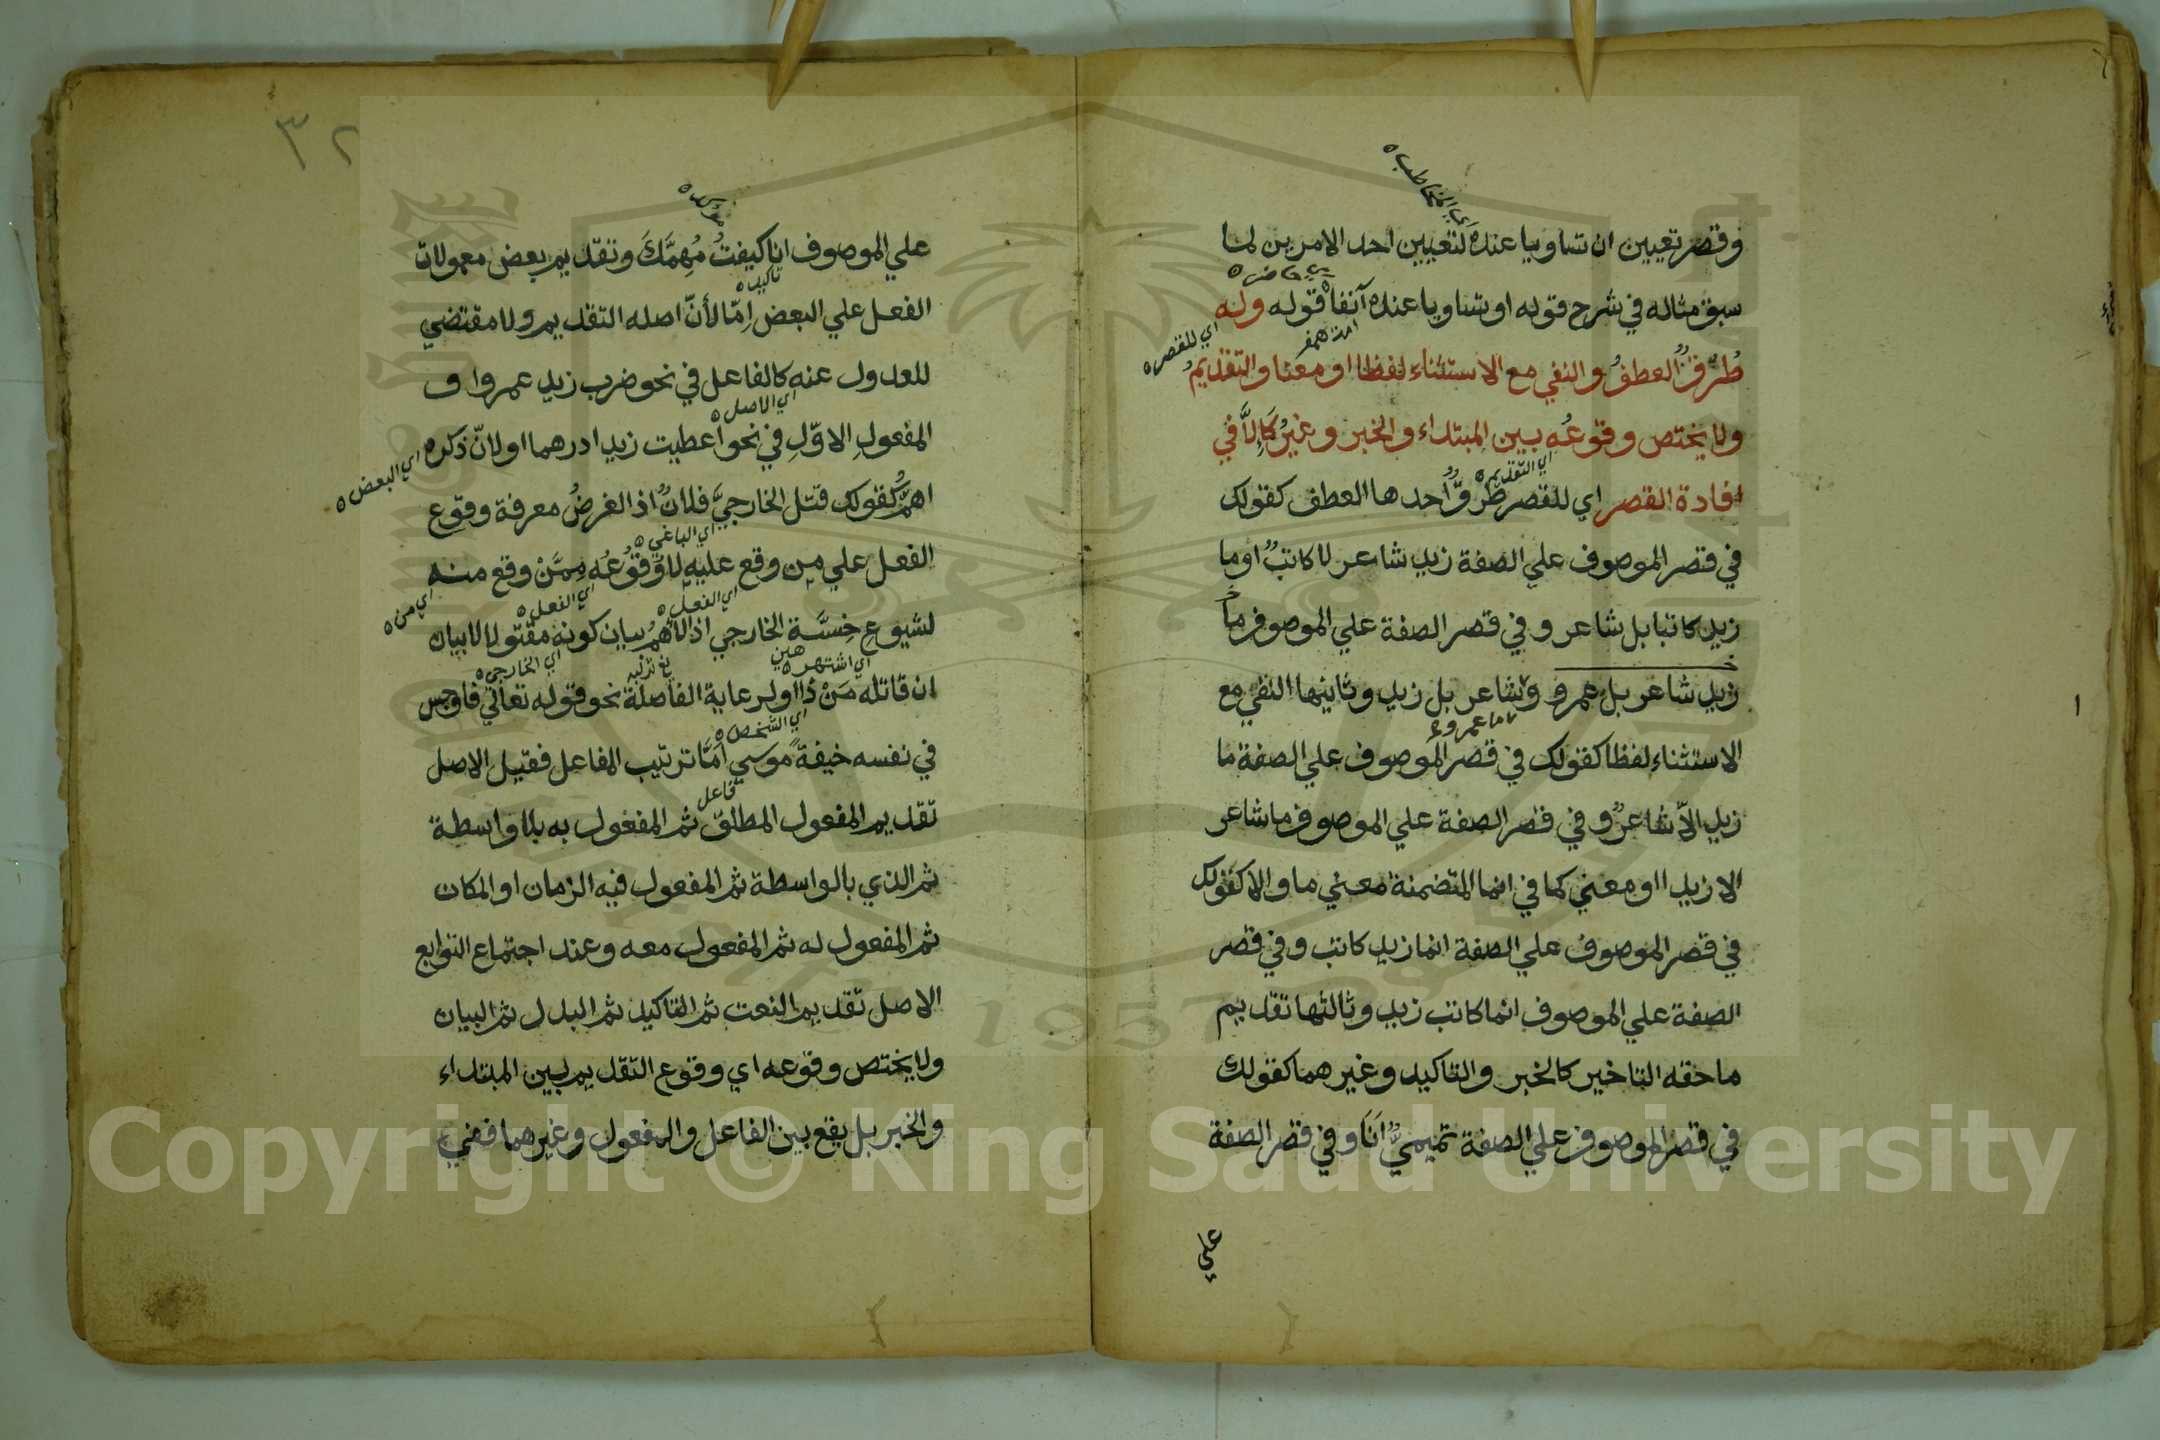 وقصر تعيين ان تساويا عنده لتعيين احد الامرين لما
سبق مثاله في شرح قوله او تساويا عنده آنفا قوله وله
طُرُقٌ العطفُ والنفي مع الاستثناء لفظا او معنا والتقديمُ
ولا يختص وقوعُه بين المبتداء والخبر وغيرُ كَإلاَّ في
افادة القصر اي للقصر طرقٌ احدها العطف كقولك
في قصر الموصوف علي الصفة زيد شاعر لا كاتبٌ او ما
زيد كاتبا بل شاعر وفي قصر الصفة علي الموصوف ما
زيد شاعر بل عمرو وشاعر بل زيد وثانيها النفي مع
الاستثناء لفظا كقولك في قصر الموصوف علي الصفة ما
زيد الاّ شاعرٌ وفي قصر الصفة علي الموصوف ما شاعر
الا زيد او معني كما في انما المتضمنة معني ما والا كقولك
في قصر الموصوف علي الصفة انما زيد كاتب وفي قصر
الصفة علي الموصوف انما كاتب زيد وثالثها تقديم
ما حقه التاخير كالخبر والتاكيد وغيرهما كقولك
في قصر الموصوف علي الصفة تميميٌّ اَنَا وفي قصر الصفة
علي
اي المخاطب
اي للقصر
اي التقديم
ما عمرو
٣٢
علي الموصوف انا كيفتُ مُهِمَّكَ وتقديم بعض معمولات
الفعل علي البعض اِمّا لأنّ اصله التقديم ولا مقتضي
للعدول عنه كالفاعل في نحو ضرب زيد عمروا و
المفعولِ الاوّلِ في نحو اعطيت زيدا درهما او لانّ ذكره
اهمُّ كقولك قتل الخارجيَّ فلانٌ اذ الغرضُ معرفة وقوع
الفعل علي من وقع عليه لا وقوعُه مِمَّنْ وقع منه
لشيوع خِسَّة الخارجي اذ الاهمُّ بيان كونه مقتولا لا بيان
ان قاتله مَنْ ذا او لرعاية الفاصلة نحو قوله تعالي فاوجس
في نفسه خيفةً موسي اَمَّا ترتيب المفاعل فقيل الاصل
تقديم المفعول المطلق ثم المفعول به بلا واسطة
ثم الذي بالواسطة ثم المفعول فيه الزمان او المكان
ثم المفعول له ثم المفعول معه وعند اجتماع التوابع
الاصل تقديم النعت ثم التاكيد ثم البدل ثم البيان
ولا يختص وقوعه اي وقوع التقديم بين المبتداء
والخبر بل يقع بين الفاعل والمفعول وغيرهما ففي
تاكيد
اي الاصل
اي البعض
اي الباغي
اي الفعل
اي الفعل
اي من
اي اشتهر
اي الخارجي
اي الشخص
فاعل
1957
Copyright © King Saud University